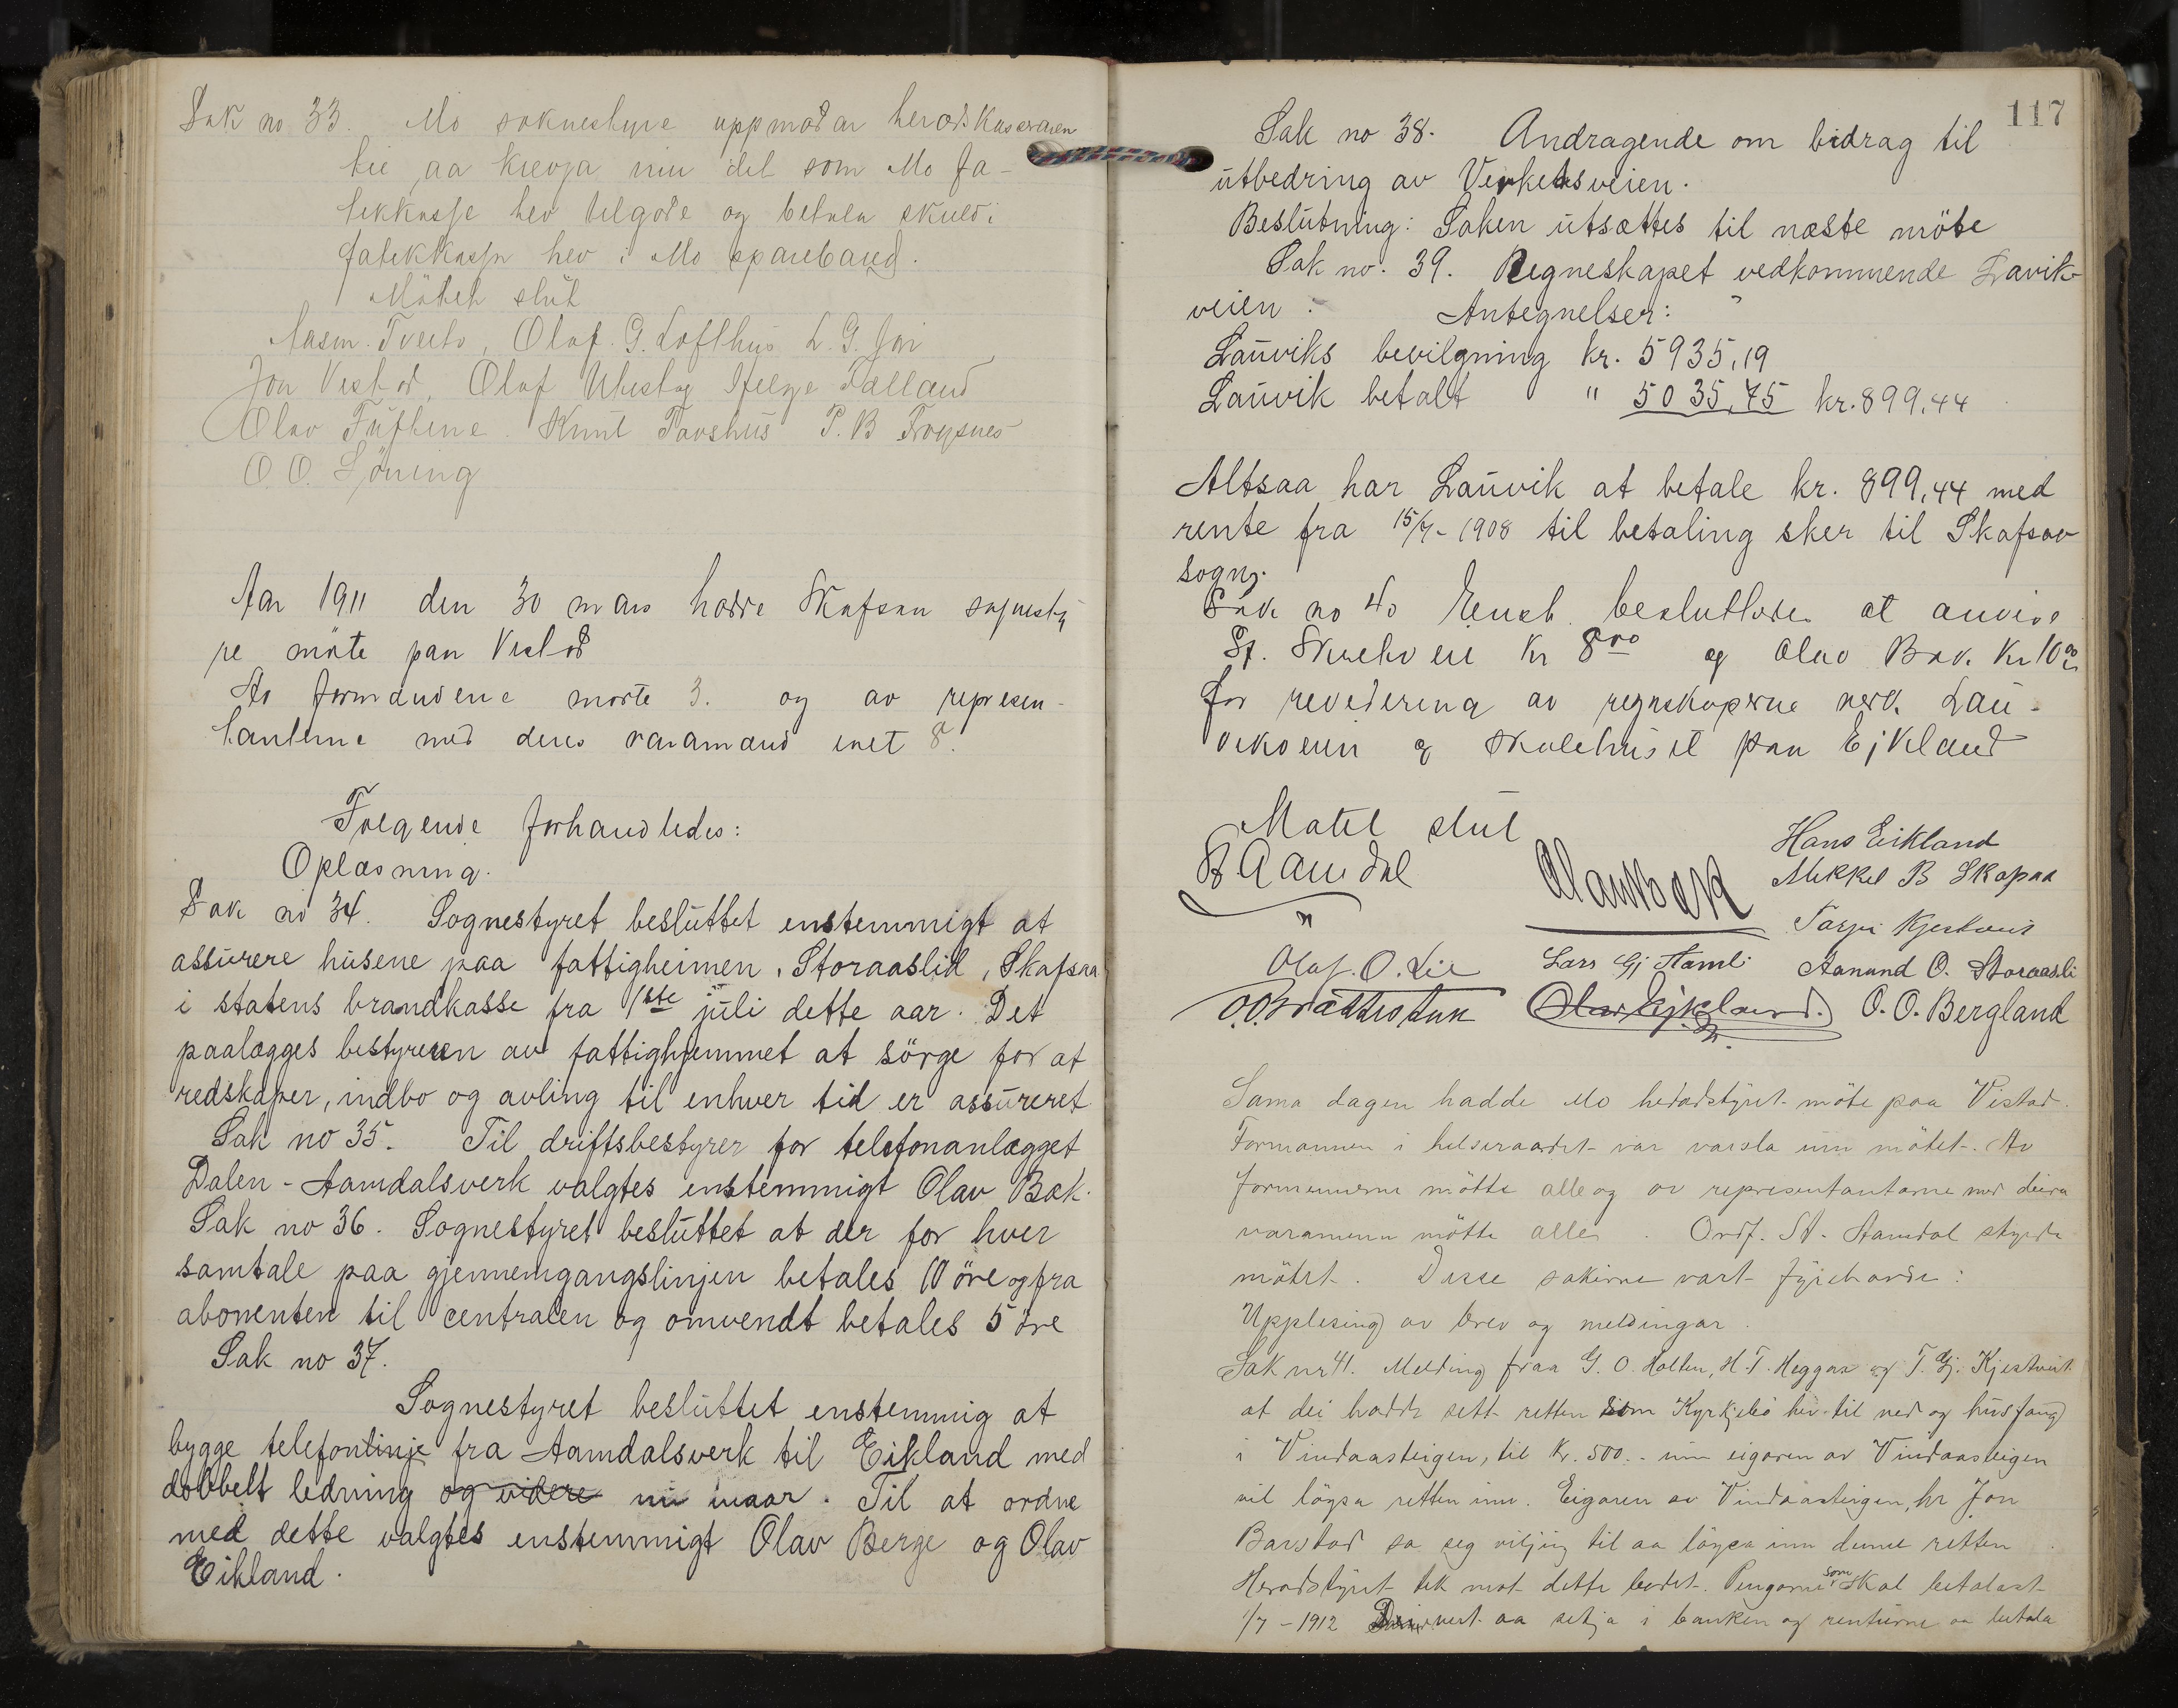 Sak no 33. Mo soknestyre uppmodar heradskasseraren
til aa krevja inn det som Mo fa-
tikkasse hev tilgode og betala skuldi
fatikkassa hev i Mo sparebank.
Mötet slut
Aasm. Tveito, Olaf. G. Lofthus L. G.
Jon Vistad, Olaf Helge Falland
Olav Tuftene. Knut Tovshus P. B.
O. O. Löning
Aar 1911 den 30 mars hadde Skafsaa sognesty
re möte paa Vistad
Av formændene mötte 3. og av represen-
tanterne med deres varamænd 8.
Fölgende forhandledes:
Oplæsning.
Sak no 34. Sognestyret besluttet enstemmigt at
assurere husene paa fattigheimen, Storaaslid, Skafsaa
i statens brandkasse fra 1ste juli dette aar. Det
paalægges bestyreren av fattighjemmet at sörge for at
redskaper, indbo og avling til enhver tid er assureret
Sak no 35. Til driftsbestyrer for telefonanlægget
Dalen - Aamdalsverk valgtes enstemmigt Olav Bæk.
Sak no 36. Sognestyret besluttet at der for hver
samtale paa gjennemgangslinjen betales 10 öre og fra
abonenten til centralen og omvendt betales 5 öre
Sak no 37.
Sognestyret besluttet enstemmig at
bygge telefonlinje fra Aamdalsverk til Eikland med
dobbelt ledning og videre nu i vaar. Til at ordne
med dette valgtes enstemmigt Olav Berge og Olav
Eikland.
117
Sak no 38. Andragende om bidrag til
utbedring av Verketsveien.
Beslutning: Saken utsættes til næste möte
Sak no. 39. Regneskapet vedkommende Lavik-
veien. Antegnelser:
Lauviks bevilgning kr. 5935,19
Lauvik betalt " 5035,75 kr. 899,44
Altsaa har Lauvik at betale kr. 899,44 med
rente fra 15/7-1908 til betaling sker til Skafsaa
sogn.
Sak no 40 Enst. besluttedes at anvise
St. Kr 8 00 og Olav Bæk Kr 10 00
for revidering av regnskaperne vedk. Lau-
viksveien og skolehuset paa Ejkland
Mötet slut
St Aamdal
Olav Bæk
Hans Eikland
Mikkel B Skapaa
Tarjei Kjestveit
Olaf. O. Lie
Lars Gj Hamli
Aanund O. Storaasli
O. O. Brattestuk
Olav Ejkland.
O. O. Bergland
Sama dagen hadde Mo heradstyret möte paa Vistad.
Formannen i helseraadet var varsla um mötet. Av
formennerne mötte alle og av representantarne med deira
varamenn mötte alle. Ordf. St. Aamdal styrde
mötet. Desse sakirne vart fyrehavde:
Upplesing av brev og meldingar.
Sak nr 41. Melding fraa G. O. Holten, H. T. Heggaa og T. Gj. Kjestveit
at dei hadde sett retten som Kyrkjebö hev til ved og husfang
i Vindaasteigen, til Kr. 500.- um eigaren av Vindaasteigen
vil löysa retten inn. Eigaren av Vindaasteigen, hr Jon
Barstad sa seg viljug til aa löysa inn denne retten
Heradstyret tek mot dette bodet. Pengarne som skal betalast
1/7-1912 vert aa setja i banken og renturne aa betala